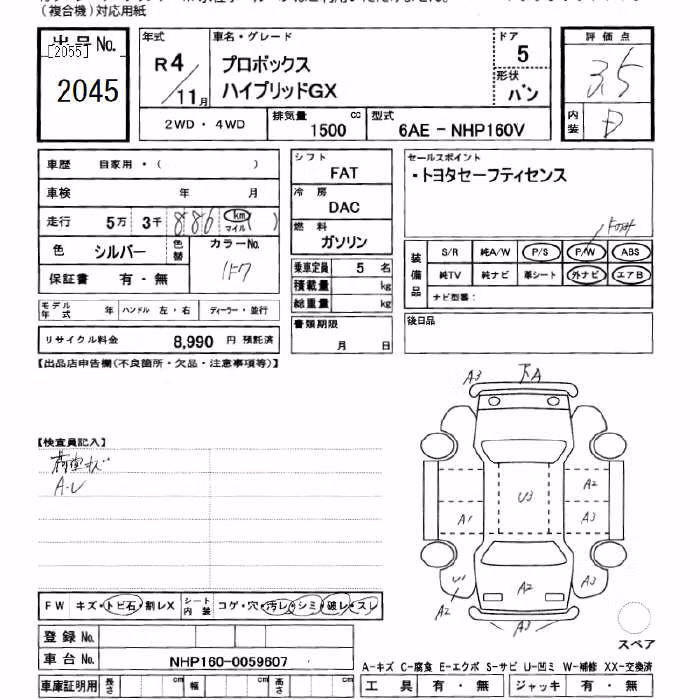 (複合機)対応用紙
出品No.
[2055]
2045
年式
R4/11月
車名・グレード
プロボックス
ハイブリッドGX
ドア
5
形状
バン
評価点
3.5
内装
D
2WD・4WD
排気量 1500 cc
型式 6AE-NHP160V
車歴 自家用・( )
車検 年 月
走行 5万 3千 886 km マイル ( )
色 シルバー 色替
カラーNo.
1F7
保証書 有・無
シフト
FAT
冷房
DAC
燃料
ガソリン
乗車定員 5 名
積載量 kg
総重量 kg
セールスポイント
・トヨタセーフティセンス
装備品
S/R 純A/W P/S P/W ABS
純TV 純ナビ 革シート 外ナビ エアB
ナビ型番:
モデル年式 年 ハンドル 左・右 ディーラー・並行
リサイクル料金 8,990 円 預託済
書類期限
月 日
後日品
【出品店申告欄(不良箇所・欠品・注意事項等)】
【検査員記入】
A・U
A3
A
A2
U3
A1
A3
U1
A2
A2
A3
A3
スペア
FW キズ・トビ石・割レX シート内装 コゲ・穴・汚レ・シミ・破レ・スレ
登録No.
車台No. NHP160-0059607
車庫証明用 長さ cm 幅 cm 高さ cm
A-キズ C-腐食 E-エクボ S-サビ U-凹ミ W-補修 XX-交換済
工具 有・無 ジャッキ 有・無